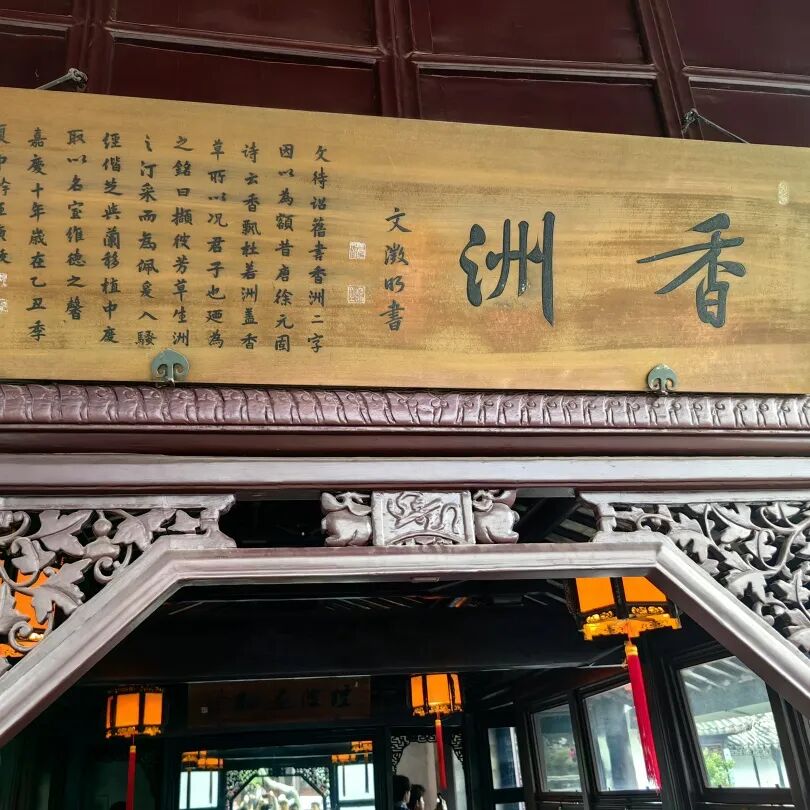 香洲
文徵明書
文待詔舊書香洲二字
因以為額昔唐徐元固
詩云香飄杜若洲蓋香
草所以況君子也廼為
之銘曰擷彼芳草生洲
之汀采而為佩爰入騷
經偕芝與蘭移植中庭
取以名室維德之馨
嘉慶十年歲在乙丑季
夏中